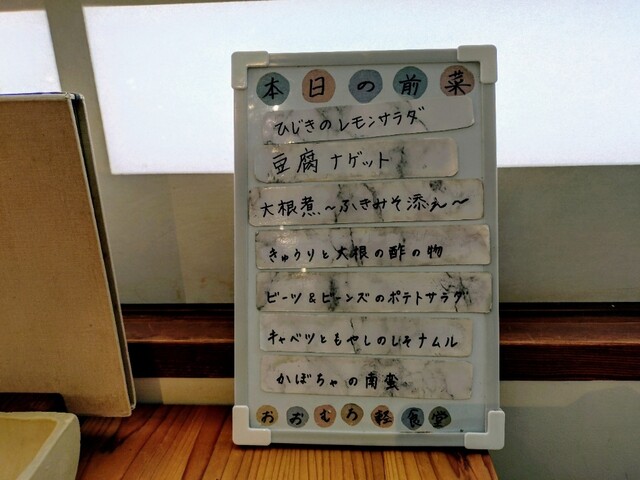 本日の前菜
ひじきのレモンサラダ
豆腐ナゲット
大根煮～ふきみそ添え～
きゅうりと大根の酢の物
ビーツ&ビーンズのポテトサラダ
キャベツともやしのしそナムル
かぼちゃの南蛮
おおむろ軽食堂